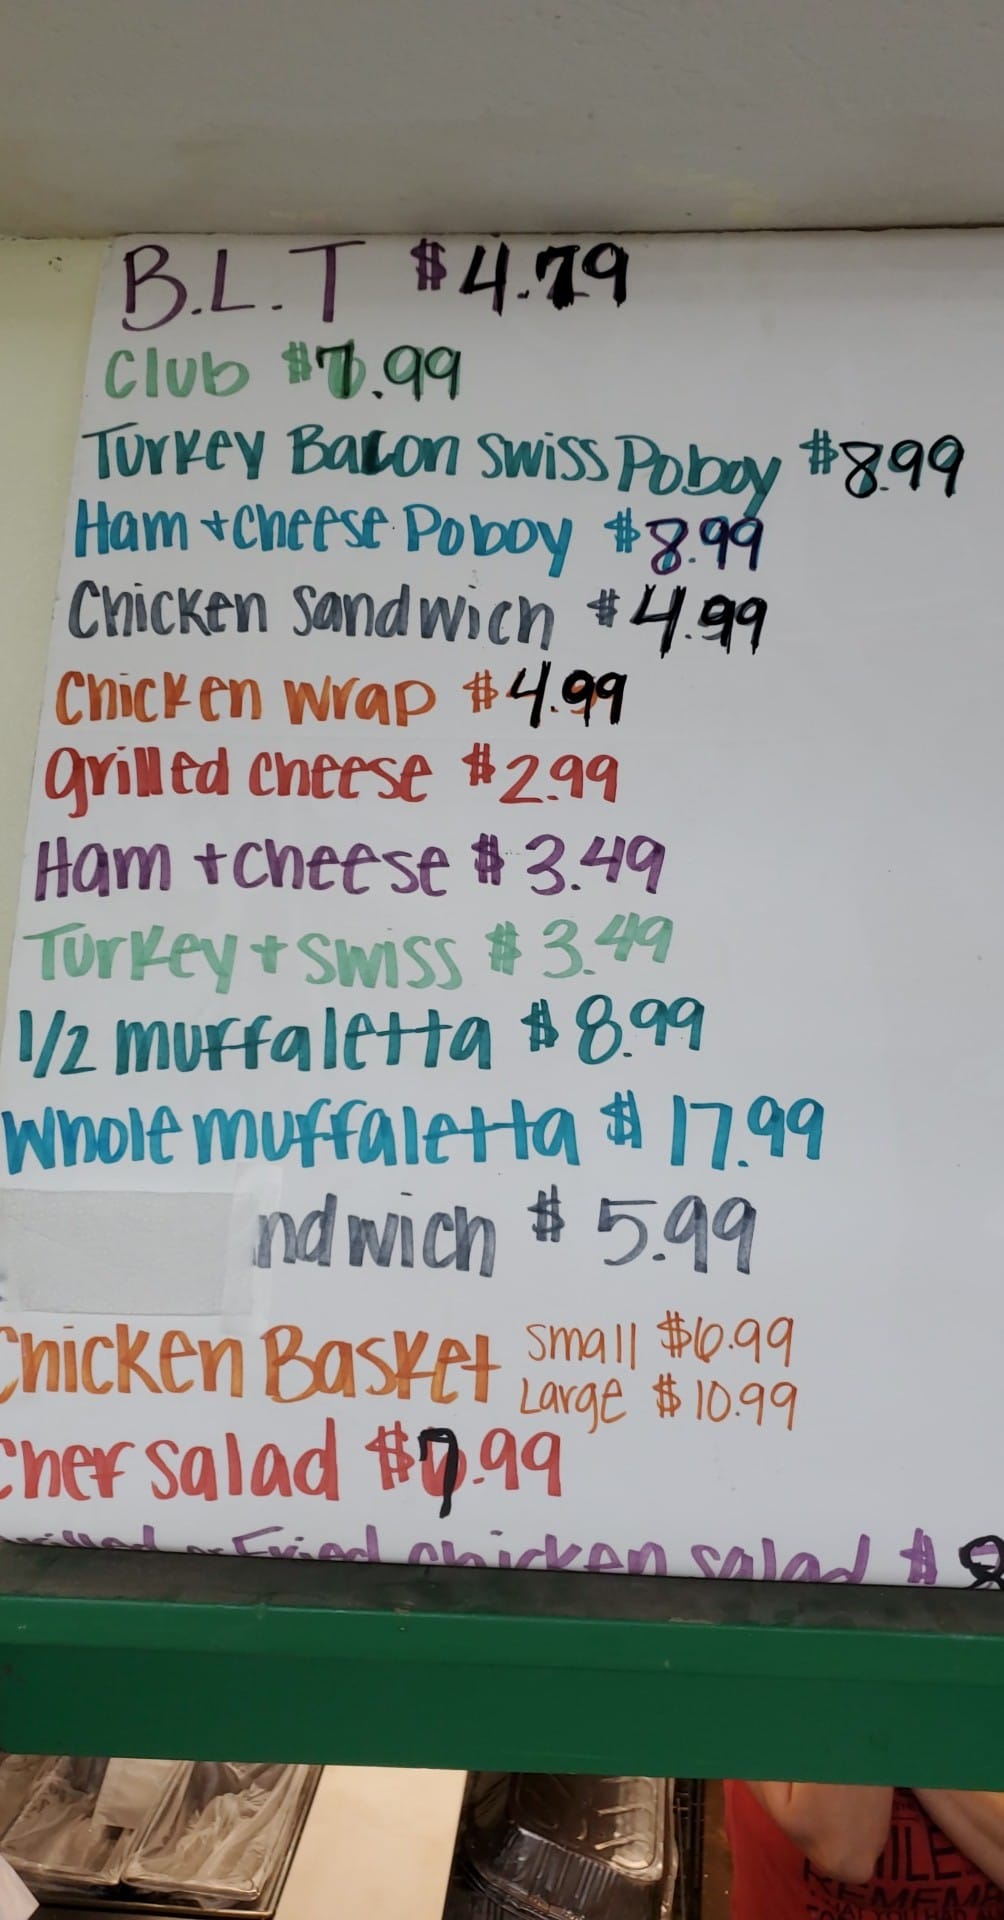 B.L.T $4.79
Club $7.99
Turkey Bacon Swiss Poboy $8.99
Ham + Cheese Poboy $8.99
Chicken Sandwich $4.99
Chicken Wrap $4.99
grilled cheese $2.99
Ham + cheese $3.49
Turkey + Swiss $3.49
1/2 muffaletta $8.99
Whole muffaletta $17.99
ndwich $5.99
Chicken Basket small $6.99
Large $10.99
Chef salad $7.99
Grilled or Fried chicken salad $8